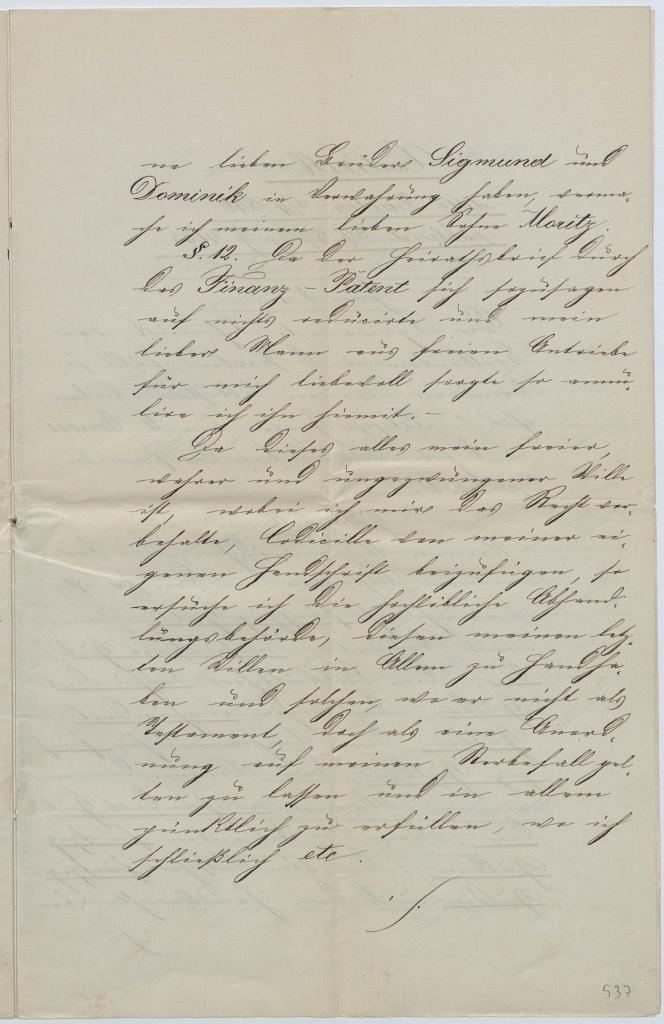 ne lieben Brüder Sigmund und
Dominik in Verwahrung haben, verma-
che ich meinem lieben Sohne Moritz.
§. 12. Da der Heirathsbrief durch
das Finanz-Patent sich sozusagen
auf nichts reducirte und mein
lieber Mann aus freien Antriebe
für mich liebevoll sorgte so annu-
lire ich ihn hiemit. –
Da dieses alles mein freier,
wahrer und ungezwungener Wille
ist, wobei ich mir das Recht vor-
behalte, Codicille von meiner ei-
genen Handschrift beizufügen, so
ersuche ich die hochlöbliche Abhand-
lungsbehörde, diesen meinen letz-
ten Willen in Allem zu handha-
ben und solchen, wo er nicht als
Testament, doch als eine Anord-
nung auf meinen Sterbefall gel-
ten zu lassen und in allem
pünktlich zu erfüllen, wo ich
schließlich etc.
537